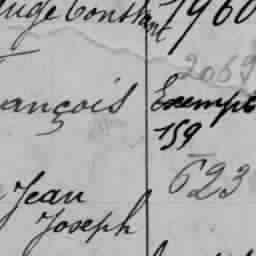 Constant 1960
2069
ançois Exempt
159
623
Jean
Joseph